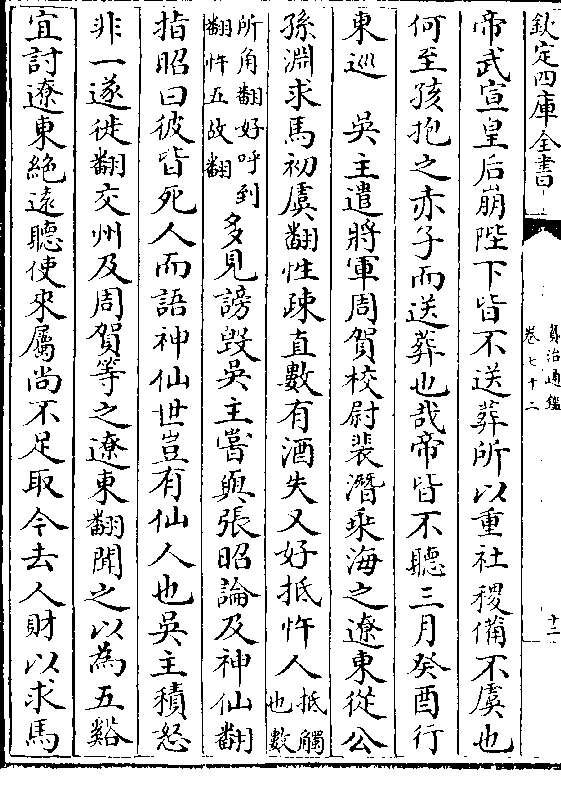 欽定四庫全書
資治通鑑
卷七十二
十二
帝武宣皇后崩陛下皆不送葬所以重社稷備不虞也
何至孩抱之赤子而送葬也哉帝皆不聽三月癸酉行
東巡　吳主遣將軍周賀校尉裴潛乘海之遼東從公
孫淵求馬初虞翻性疎直數有酒失又好抵忤人抵觸也數
所角翻好呼到翻忤五故翻多見謗毁吳主嘗與張昭論及神仙翻
指昭曰彼皆死人而語神仙世豈有仙人也吳主積怒
非一遂徙翻交州及周賀等之遼東翻聞之以為五谿
宜討遼東絶遠聽使來屬尚不足取今去人財以求馬